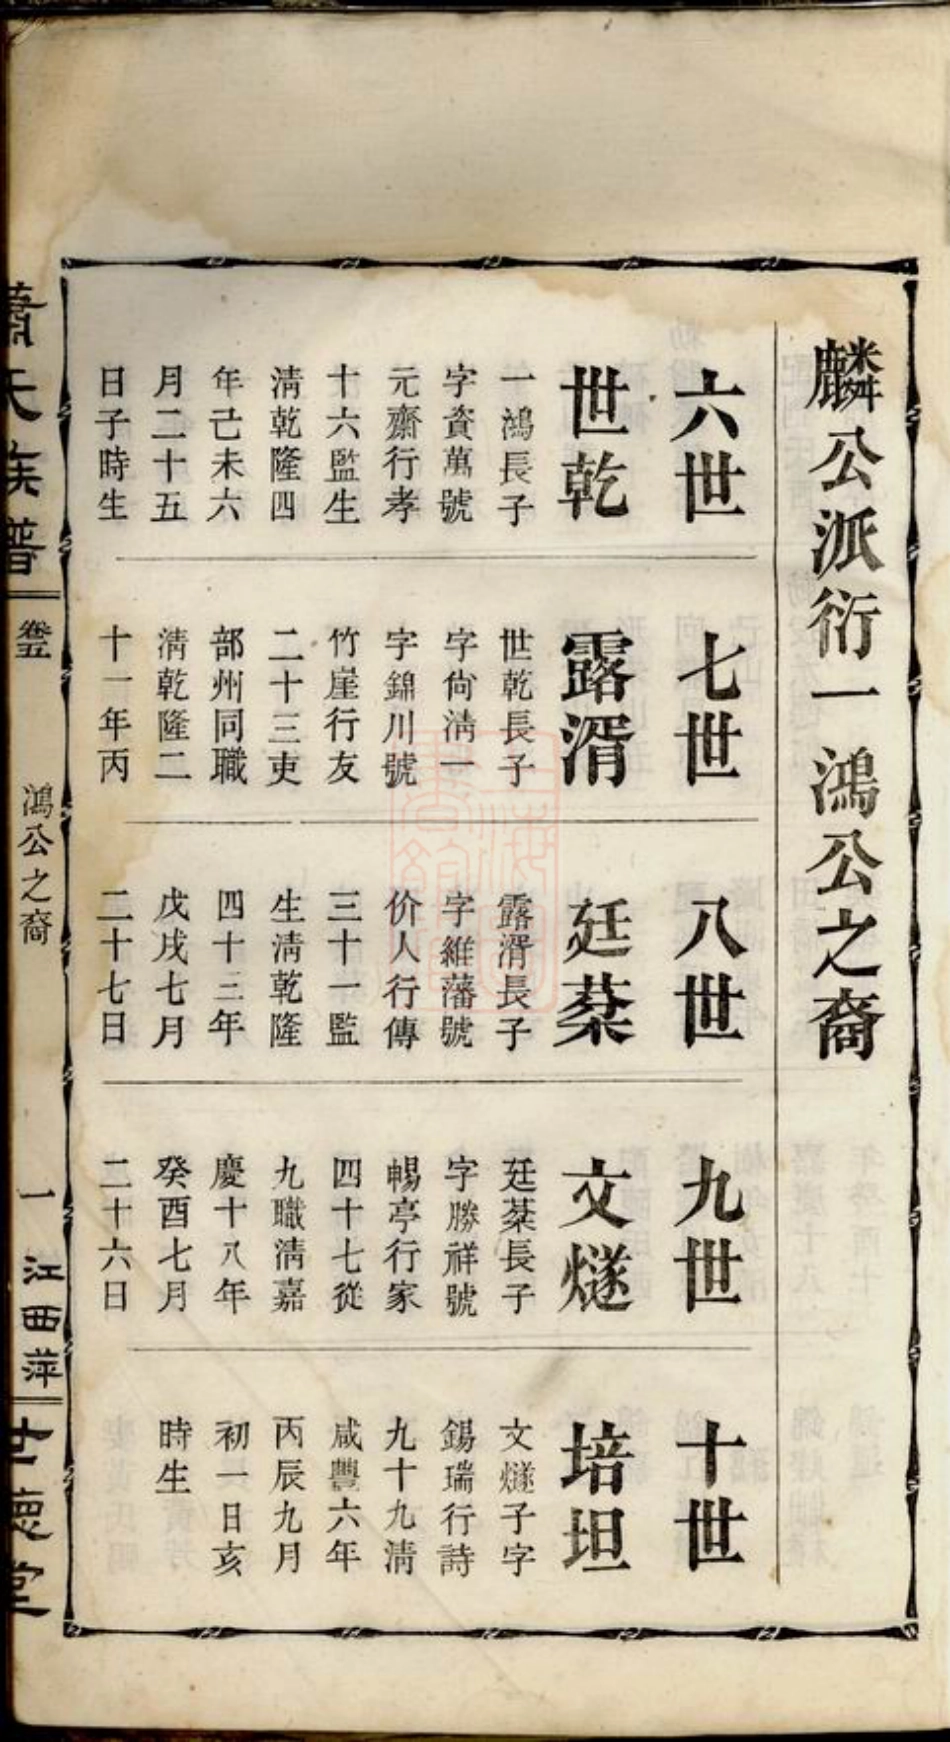 麟公派衍一鴻公之裔
六世
世乾
一鴻長子
字資萬號
元齋行孝
十六監生
淸乾隆四
年己未六
月二十五
日子時生
七世
露湑
世乾長子
字尙淸一
字錦川號
竹崖行友
二十三吏
部州同職
淸乾隆二
十一年丙
八世
廷棻
露湑長子
字維藩號
价人行傳
三十一監
生淸乾隆
四十三年
戊戌七月
二十七日
九世
文燧
廷棻長子
字勝祥號
暢亭行家
四十七從
九職淸嘉
慶十八年
癸酉七月
二十六日
十世
培坦
文燧子字
錫瑞行詩
九十九淸
咸豐六年
丙辰九月
初一日亥
時生
蕭氏族譜
卷五
鴻公之裔
一
江西萍
世德堂